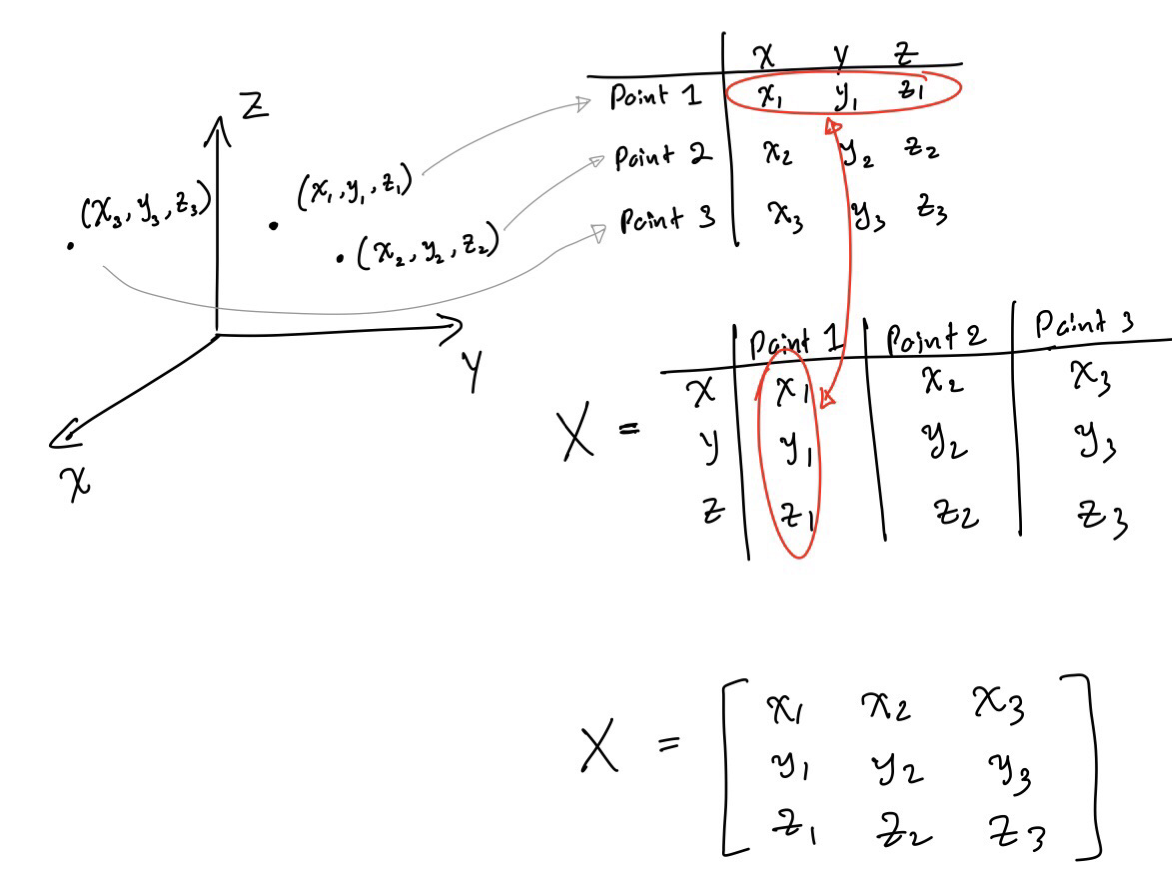 Z
(x₃, y₃, z₃)
(x₁, y₁, z₁)
(x₂, y₂, z₂)
y
x
x y z
Point 1 x₁ y₁ z₁
Point 2 x₂ y₂ z₂
Point 3 x₃ y₃ z₃
Point 1 Point 2 Point 3
X =
x x₁ x₂ x₃
y y₁ y₂ y₃
z z₁ z₂ z₃
X =
x₁ x₂ x₃
y₁ y₂ y₃
z₁ z₂ z₃